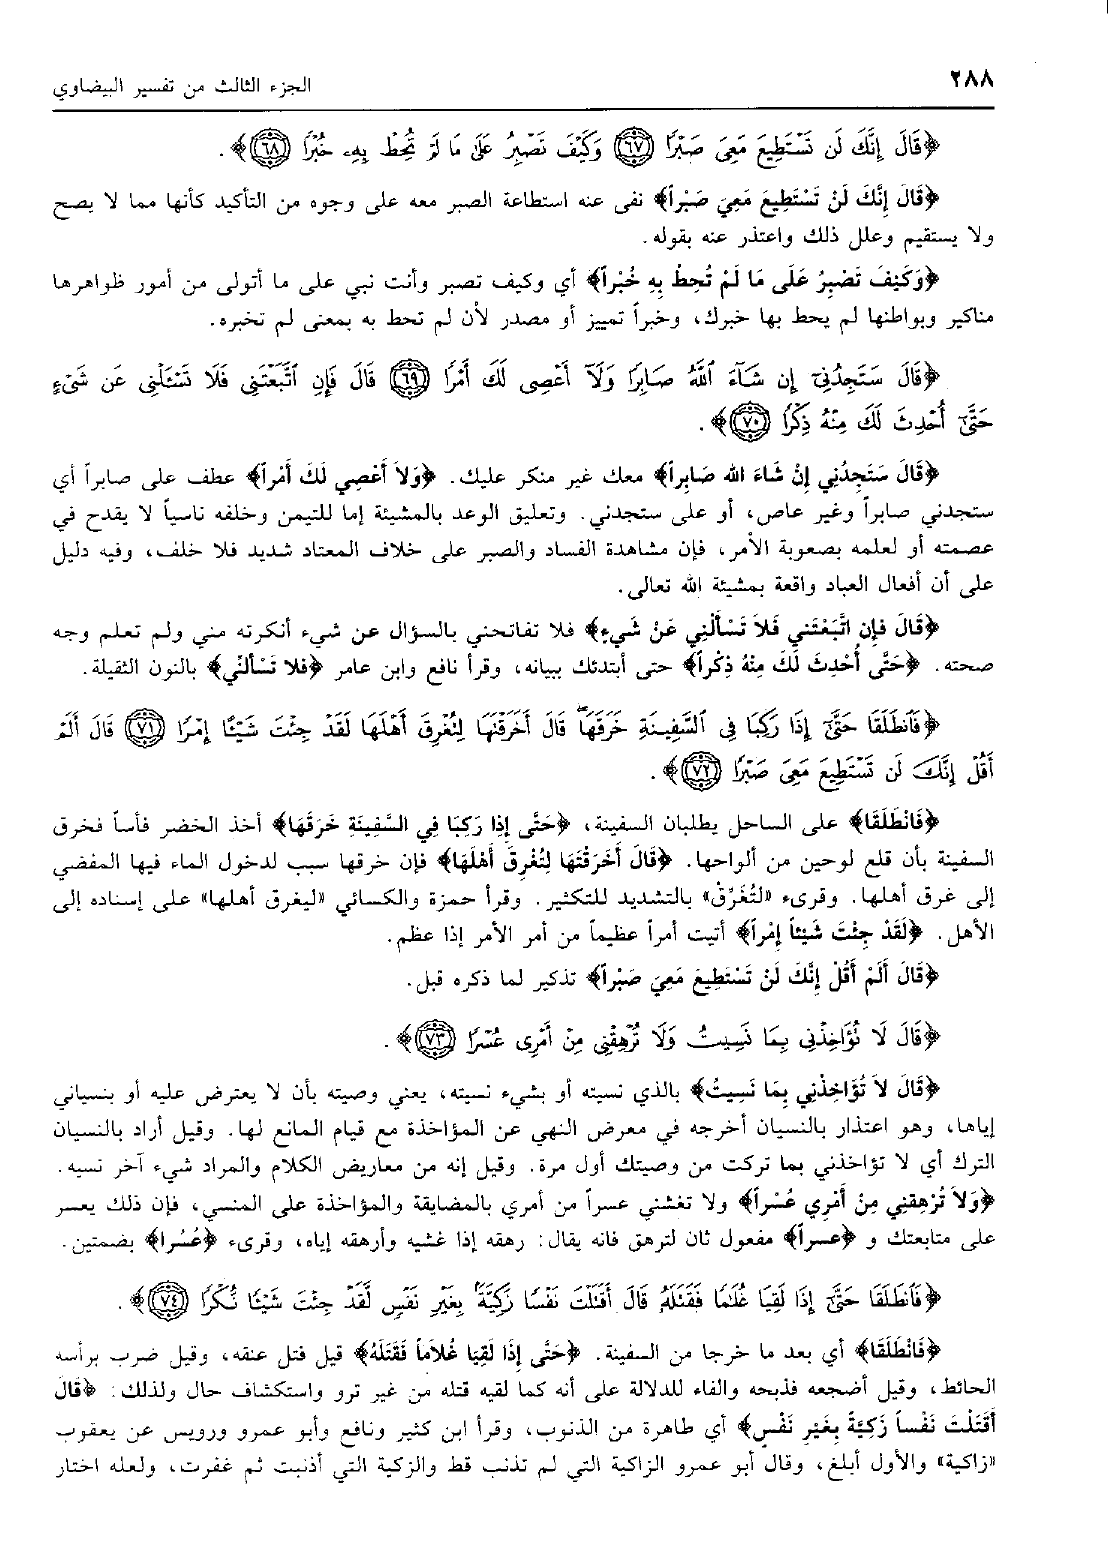 ٢٨٨
الجزء الثالث من تفسير البيضاوي
﴿قَالَ إِنَّكَ لَن تَسْتَطِيعَ مَعِىَ صَبْرًا ﴿٦٧﴾ وَكَيْفَ تَصْبِرُ عَلَىٰ مَا لَمْ تُحِطْ بِهِۦ خُبْرًا ﴿٦٨﴾﴾.
﴿قَالَ إِنَّكَ لَنْ تَسْتَطِيعَ مَعِيَ صَبْراً﴾ نفى عنه استطاعة الصبر معه على وجوه من التأكيد كأنها مما لا يصح
ولا يستقيم وعلل ذلك واعتذر عنه بقوله.
﴿وَكَيْفَ تَصْبِرُ عَلَى مَا لَمْ تُحِطْ بِهِ خُبْراً﴾ أي وكيف تصبر وأنت نبي على ما أتولى من أمور ظواهرها
مناكير وبواطنها لم يحط بها خبرك، وخبراً تمييز أو مصدر لأن لم تحط به بمعنى لم تخبره.
﴿قَالَ سَتَجِدُنِىٓ إِن شَآءَ ٱللَّهُ صَابِرًا وَلَآ أَعْصِى لَكَ أَمْرًا ﴿٦٩﴾ قَالَ فَإِنِ ٱتَّبَعْتَنِى فَلَا تَسْـَٔلْنِى عَن شَىْءٍ
حَتَّىٰٓ أُحْدِثَ لَكَ مِنْهُ ذِكْرًا ﴿٧٠﴾﴾.
﴿قَالَ سَتَجِدُنِي إِنْ شَاءَ الله صَابِراً﴾ معك غير منكر عليك. ﴿وَلاَ أَعْصِي لَكَ أَمْراً﴾ عطف على صابراً أي
ستجدني صابراً وغير عاص، أو على ستجدني. وتعليق الوعد بالمشيئة إما للتيمن وخلفه ناسياً لا يقدح في
عصمته أو لعلمه بصعوبة الأمر، فإن مشاهدة الفساد والصبر على خلاف المعتاد شديد فلا خلف، وفيه دليل
على أن أفعال العباد واقعة بمشيئة الله تعالى.
﴿قَالَ فَإِنِ اتَّبَعْتَنِي فَلاَ تَسْأَلْنِي عَنْ شَيءٍ﴾ فلا تفاتحني بالسؤال عن شيء أنكرته مني ولم تعلم وجه
صحته. ﴿حَتَّى أُحْدِثَ لَكَ مِنْهُ ذِكْراً﴾ حتى أبتدئك ببيانه، وقرأ نافع وابن عامر ﴿فَلا تَسْألَنّي﴾ بالنون الثقيلة.
﴿فَٱنطَلَقَا حَتَّىٰٓ إِذَا رَكِبَا فِى ٱلسَّفِينَةِ خَرَقَهَا ۖ قَالَ أَخَرَقْتَهَا لِتُغْرِقَ أَهْلَهَا لَقَدْ جِئْتَ شَيْـًٔا إِمْرًا ﴿٧١﴾ قَالَ أَلَمْ
أَقُلْ إِنَّكَ لَن تَسْتَطِيعَ مَعِىَ صَبْرًا ﴿٧٢﴾﴾.
﴿فَانْطَلَقَا﴾ على الساحل يطلبان السفينة، ﴿حَتَّى إِذَا رَكِبَا فِي السَّفِينَةِ خَرَقَهَا﴾ أخذ الخضر فأساً فخرق
السفينة بأن قلع لوحين من ألواحها. ﴿قَالَ أَخَرَقْتَهَا لِتُغْرِقَ أَهْلَهَا﴾ فإن خرقها سبب لدخول الماء فيها المفضي
إلى غرق أهلها. وقرىء «لتُغَرِّقَ» بالتشديد للتكثير. وقرأ حمزة والكسائي «ليغرق أهلها» على إسناده إلى
الأهل. ﴿لَقَدْ جِئْتَ شَيْئاً إِمْراً﴾ أتيت أمراً عظيماً من أمر الأمر إذا عظم.
﴿قَالَ أَلَمْ أَقُلْ إِنَّكَ لَنْ تَسْتَطِيعَ مَعِيَ صَبْراً﴾ تذكير لما ذكره قبل.
﴿قَالَ لَا تُؤَاخِذْنِى بِمَا نَسِيتُ وَلَا تُرْهِقْنِى مِنْ أَمْرِى عُسْرًا ﴿٧٣﴾﴾.
﴿قَالَ لاَ تُؤَاخِذْنِي بِمَا نَسِيتُ﴾ بالذي نسيته أو بشيء نسيته، يعني وصيته بأن لا يعترض عليه أو بنسياني
إياها، وهو اعتذار بالنسيان أخرجه في معرض النهي عن المؤاخذة مع قيام المانع لها. وقيل أراد بالنسيان
الترك أي لا تؤاخذني بما تركت من وصيتك أول مرة. وقيل إنه من معاريض الكلام والمراد شيء آخر نسيه.
﴿وَلاَ تُرْهِقنِي مِنْ أَمْرِي عُسْراً﴾ ولا تغشني عسراً من أمري بالمضايقة والمؤاخذة على المنسي، فإن ذلك يعسر
على متابعتك و ﴿عسراً﴾ مفعول ثان لترهق فانه يقال: رهقه إذا غشيه وأرهقه إياه، وقرىء ﴿عُسُرا﴾ بضمتين.
﴿فَٱنطَلَقَا حَتَّىٰٓ إِذَا لَقِيَا غُلَـٰمًا فَقَتَلَهُۥ قَالَ أَقَتَلْتَ نَفْسًا زَكِيَّةًۢ بِغَيْرِ نَفْسٍ لَّقَدْ جِئْتَ شَيْـًٔا نُّكْرًا ﴿٧٤﴾﴾.
﴿فَانْطَلَقَا﴾ أي بعد ما خرجا من السفينة. ﴿حَتَّى إِذَا لَقِيَا غُلاَماً فَقَتَلَهُ﴾ قيل فتل عنقه، وقيل ضرب برأسه
الحائط، وقيل أضجعه فذبحه والفاء للدلالة على أنه كما لقيه قتله من غير ترو واستكشاف حال ولذلك: ﴿قَالَ
أَقَتَلْتَ نَفْساً زَكِيَّةً بِغَيْرِ نَفْسٍ﴾ أي طاهرة من الذنوب، وقرأ ابن كثير ونافع وأبو عمرو ورويس عن يعقوب
«زاكية» والأول أبلغ، وقال أبو عمرو الزاكية التي لم تذنب قط والزكية التي أذنبت ثم غفرت، ولعله اختار